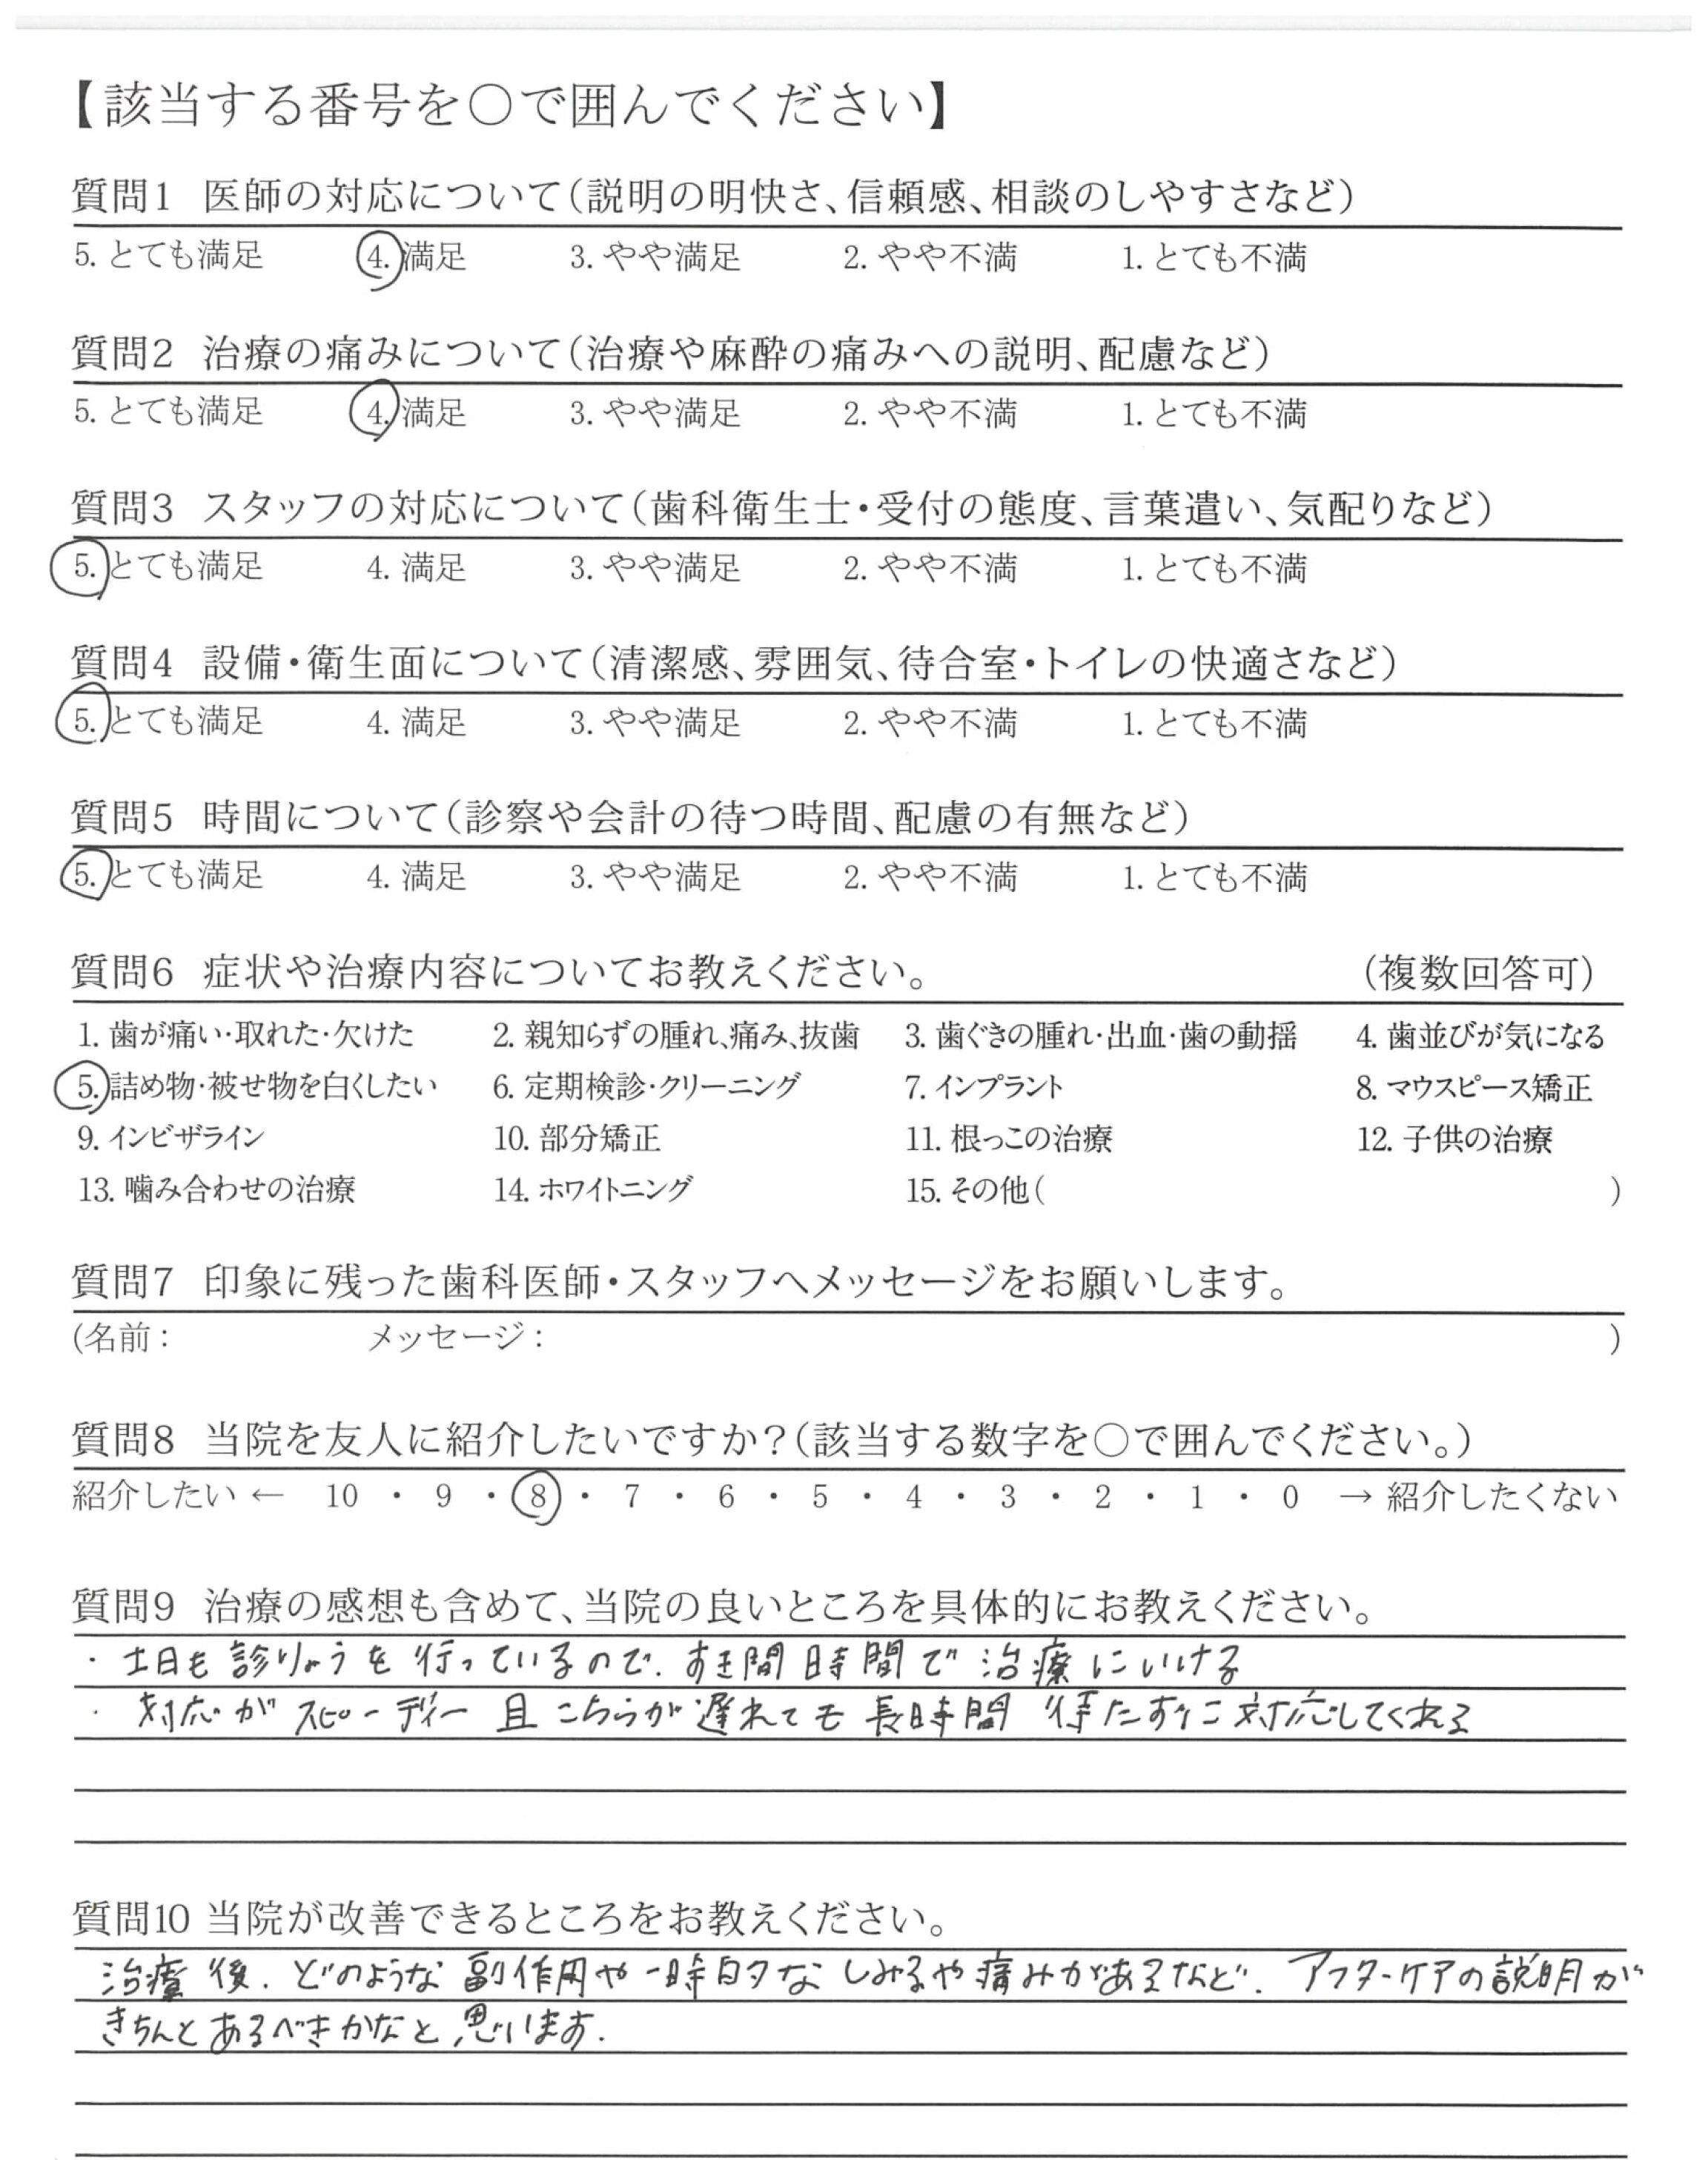 【該当する番号を○で囲んでください】
質問1 医師の対応について（説明の明快さ、信頼感、相談のしやすさなど）
5. とても満足 4. 満足 3. やや満足 2. やや不満 1. とても不満
質問2 治療の痛みについて（治療や麻酔の痛みへの説明、配慮など）
5. とても満足 4. 満足 3. やや満足 2. やや不満 1. とても不満
質問3 スタッフの対応について（歯科衛生士・受付の態度、言葉遣い、気配りなど）
5. とても満足 4. 満足 3. やや満足 2. やや不満 1. とても不満
質問4 設備・衛生面について（清潔感、雰囲気、待合室・トイレの快適さなど）
5. とても満足 4. 満足 3. やや満足 2. やや不満 1. とても不満
質問5 時間について（診察や会計の待つ時間、配慮の有無など）
5. とても満足 4. 満足 3. やや満足 2. やや不満 1. とても不満
質問6 症状や治療内容についてお教えください。 （複数回答可）
1. 歯が痛い・取れた・欠けた 2. 親知らずの腫れ、痛み、抜歯 3. 歯ぐきの腫れ・出血・歯の動揺 4. 歯並びが気になる
5. 詰め物・被せ物を白くしたい 6. 定期検診・クリーニング 7. インプラント 8. マウスピース矯正
9. インビザライン 10. 部分矯正 11. 根っこの治療 12. 子供の治療
13. 噛み合わせの治療 14. ホワイトニング 15. その他（ ）
質問7 印象に残った歯科医師・スタッフへメッセージをお願いします。
（名前： メッセージ： ）
質問8 当院を友人に紹介したいですか？（該当する数字を○で囲んでください。）
紹介したい ← 10 ・ 9 ・ 8 ・ 7 ・ 6 ・ 5 ・ 4 ・ 3 ・ 2 ・ 1 ・ 0 → 紹介したくない
質問9 治療の感想も含めて、当院の良いところを具体的にお教えください。
・ 土日も診りょうを行っているので、すき間時間で治療にいける
・ 対応がスピーディー且こちらが遅れても長時間待たずに対応してくれる
質問10 当院が改善できるところをお教えください。
治療後、どのような副作用や一時的なしみるや痛みがあるなど、アフターケアの説明が
きちんとあるべきかなと思います。